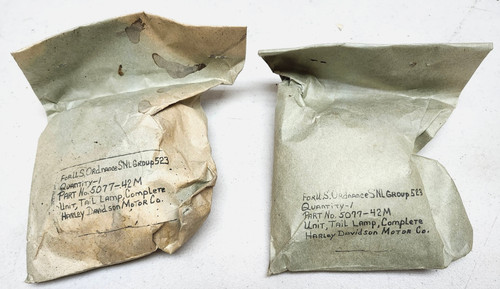 For U.S. Ordnance SNL Group 523
Quantity-1
Part No. 5077-42M
Unit, Tail Lamp, Complete
Harley Davidson Motor Co.
For U.S. Ordnance SNL Group 523
Quantity-1
Part No. 5077-42M
Unit, Tail Lamp, Complete
Harley Davidson Motor Co.